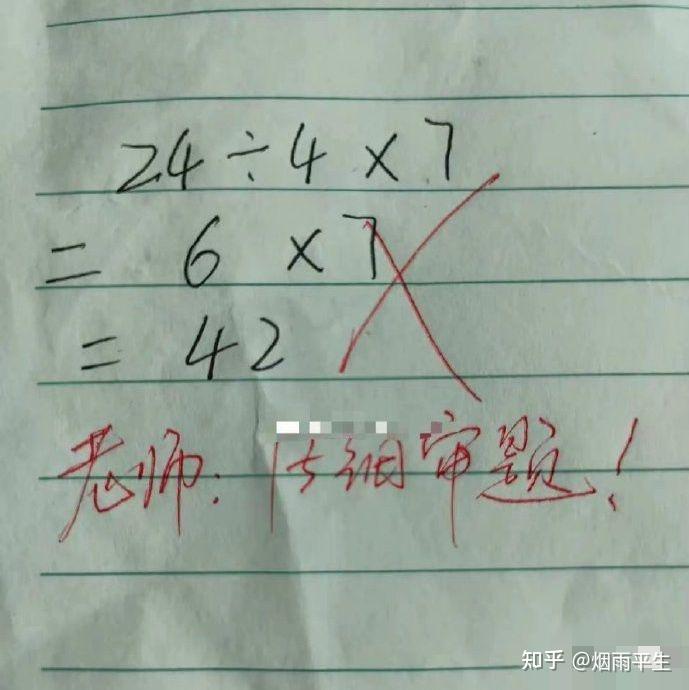 24÷4×7
= 6 ×7
= 42
老师：仔细审题！
知乎 @烟雨平生